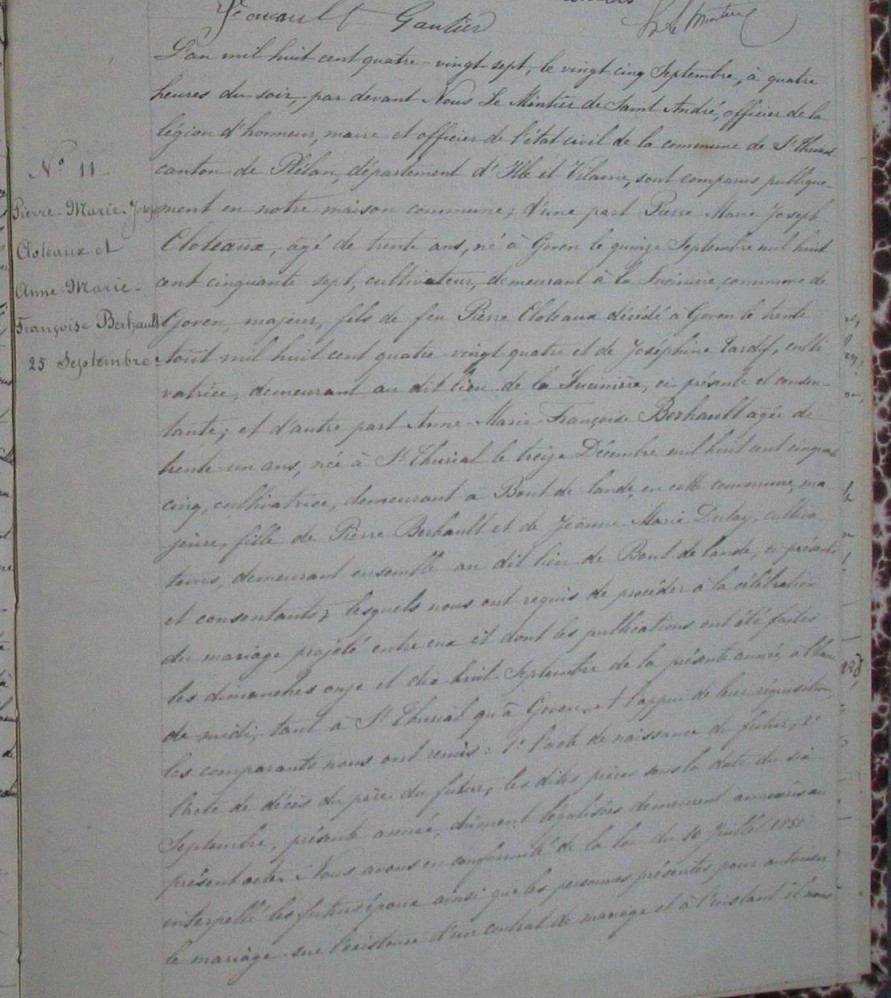 Gautier
L'an mil huit cent quatre-vingt-sept, le vingt cinq Septembre, à quatre
heures du soir, par devant Nous Le Mintier de Saint André, officier de la
légion d'honneur, maire et officier de l'état civil de la commune de St Thurial
canton de Plélan, département d'Ille et Vilaine, sont comparus publique-
ment en notre maison commune, d'une part Pierre Marie Joseph
Cloteaux, âgé de trente ans, né à Goven le quinze Septembre mil huit
cent cinquante sept, cultivateur, demeurant à la Sucinière, commune de
Goven, majeur, fils de feu Pierre Cloteaux décédé à Goven le trente
août mil huit cent quatre-vingt quatre et de Joséphine Tardif, culti
vatrice, demeurant au dit lieu de la Sucinière, ci présente et consen-
tante; et d'autre part Anne-Marie-Françoise Berhault âgée de
trente un ans, née à St Thurial le treize Décembre mil huit cent cinquante
cinq, cultivatrice, demeurant à Bout de lande, en cette commune, ma
jeure, fille de Pierre Berhault et de Jeanne-Marie, cultiva
teurs, demeurant ensemble au dit lieu de Bout de lande, ci présents
et consentants; lesquels nous ont requis de procéder à la célébration
du mariage projeté entre eux et dont les publications ont été faites
les dimanches onze et dix huit Septembre de la présente année à l'heure
de midi, tant à St Thurial qu'à Goven, et l'appui de leur réquisition,
les comparants nous ont remis: 1° l'acte de naissance du futur, 2°
l'acte de décès du père du futur, les dites pièces sous la date du six
Septembre, présente année, dûment légalisées demeurent annexées au
présent acte. Nous avons en conformité de la loi du 10 Juillet 1850
interpellé les futurs époux ainsi que les personnes présentes pour autoriser
le mariage sur l'existence d'un contrat de mariage et à l'instant il nous
N° 11
Pierre-Marie-Joseph
Cloteaux et
Anne-Marie-
Françoise Berhault
25 Septembre